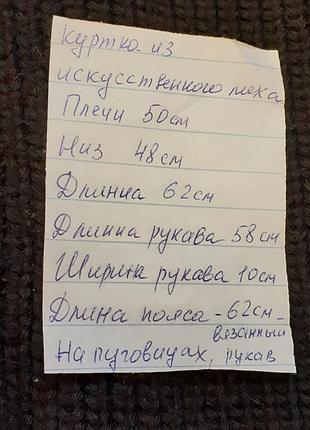 Куртка из
искусственного меха
Плечи 50см
Низ 48см
Длинна 62см
Длинна рукава 58см
Ширина рукава 10см
Длина пояса - 62см -
вязанный
На пуговицах, рукав